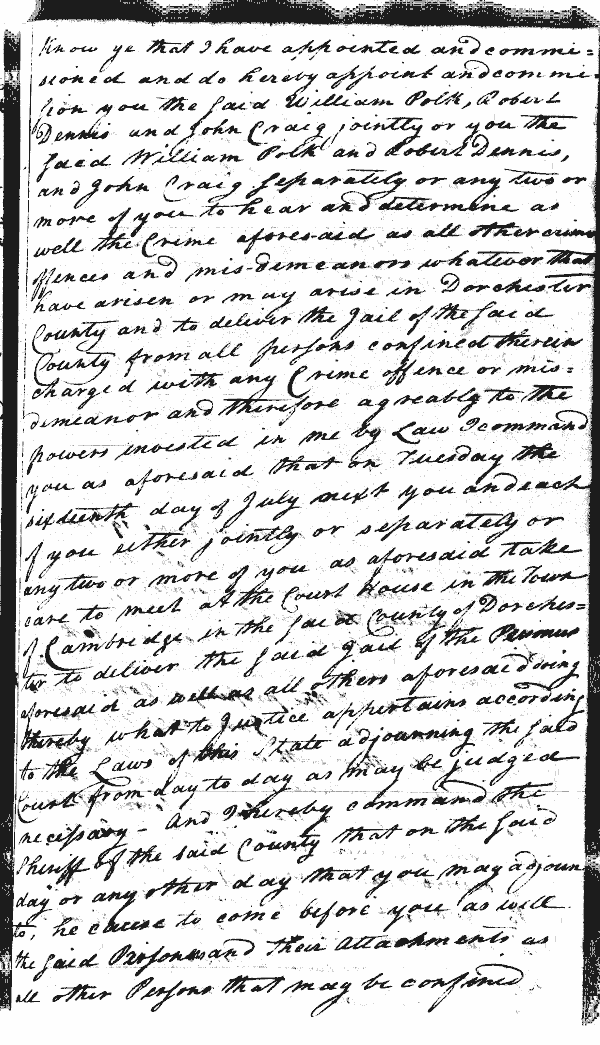 Know ye that I have appointed and commi=
sioned and do hereby appoint and commi=
sion you the said William Polk, Robert
Dennis and John Craig jointly or you the
said William Polk and Robert Dennis,
and John Craig separately or any two or
more of you to hear and determine as
well the Crime aforesaid as all other crimes
offences and mis-demeanors whatever that
have arisen or may arise in Dorchester
County and to deliver the Jail of the said
County from all persons confined therein
charged with any Crime offence or mis=
demeanor and therefore agreably to the
powers invested in me by Law I command
you as aforesaid that on Tuesday the
sixteenth day of July next you and each
of you either jointly or separately or
any two or more of you as aforesaid take
care to meet at the Court House in the Town
of Cambridge in the said County of Dorches=
ter to deliver the said Gail of the
aforesaid as well as all others aforesaid doing
thereby what to Justice appertains according
to the Laws of this State adjourning the said
Court from day to day as may be judged
necissary - And I hereby command the
Sheriff of the said County that on the said
day or any other day that you may adjourn
to, he cause to come before you as well
the said Persons and their Attachments as
all other Persons that may be confined